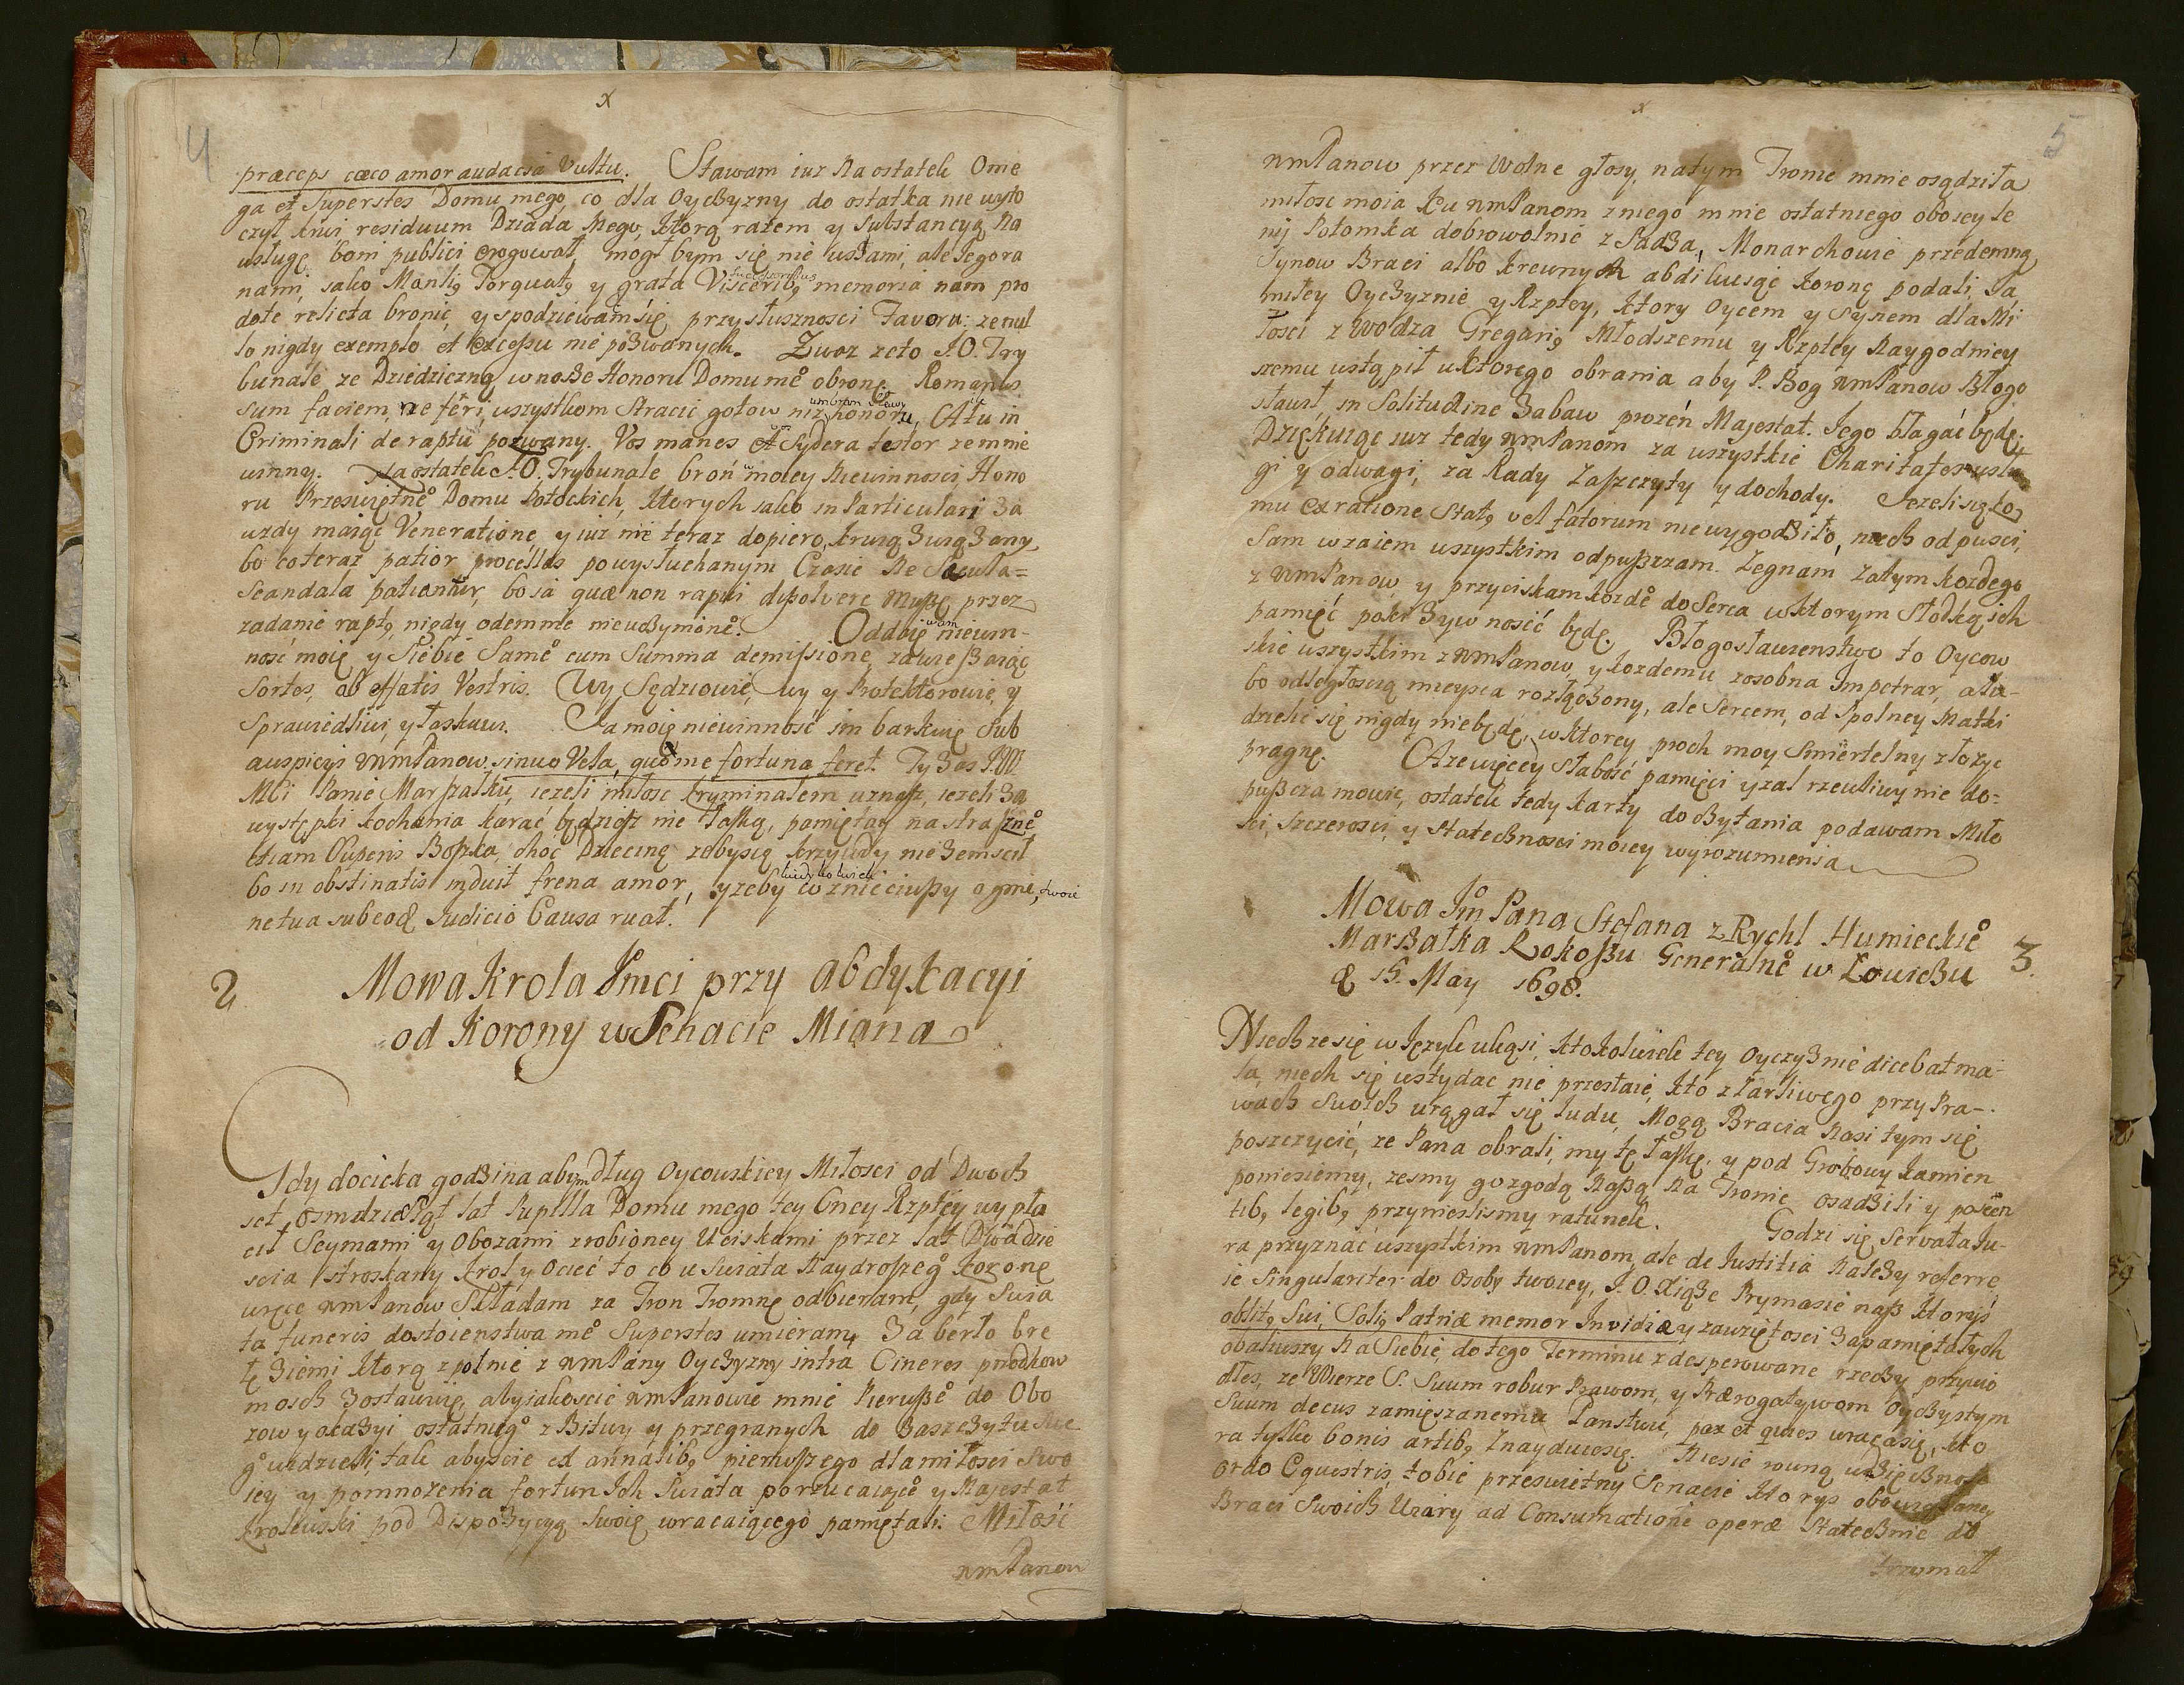 4
x
præceps cæco amor audacia Vultu. Stawam iuz na ostatek Onie
ga et Superstes Domu mego, co dla Oyczyzny do ostatka nie wyto
czył krwi residuum Dziada mego, ktorą razem y Substancyą na
usługę boni publici erogował, mogł bym się nie ustami, ale tego ra
nami, jako Manlig Torquatg y grata Visceribg memoria nam pro
dote relicta bronić, y spodziewam się przysłusznosci Favoru: ze nul
lo nigdy exemplo et excessu nie pozwanych. Zwaz zeto J.O. Try
bunale, ze Dziedziczną wnosze Honoru Domu me° obronę. Romanus
sum faciem ne feri, wszystkom stracić gotow niz honoru, Atu in
Criminali de raptu pozwany. Vos manes et Sydera testor ze mnie
winny. Na ostatek J.O. Trybunale broń w moiey niewinnosci, Hono
ru Przeswietne° Domu Potockich, ktorych jako in Particulari za
wzdy maiąc Veneratione, y iuz nie teraz dopiero, krwią związany,
bo co teraz patior procellas po wysłuchanym Czasie ne Sæcula=
Scandala patiantur, bo ia quæ non rapui disolvere muszę przez
zadanie raptg nigdy odemnie nieuczynione°. Oddaię wam niewin-
nosć moię y Siebie Same° cum Summa demissione, zawieszaiąc
Sortes, ab effatis Vestris. Wy Sędziowie, wy y Protektorowie, y
Sprawiedliwi, y łaskawi. Ja moię niewinnosć im barkuię Sub
auspicijs WmPanow. sinuo Vela, quo me fortuna feret. Ty zas J.W.
Mci Panie Marszałku, iezeli miłosc kryminałem uznasz, iezeli za
występki kochania karać będziesz nie łaską, pamiętay na straszne°
etiam Superis Bozka, choć Dziecinę zebysię krzywdy nie zemscił
bo in obstinatis induit frena amor, y zeby kiedykolwiek wznieciwszy ognie, twoie
ne tua sub eod Judicio Causa ruat.
2 Mowa Krola Jmci przy abdykacyi
od Korony w Senacie Miana
Gdy docieka godzina abym dług Oycowskiey Miłosci od Dwoch
set Osmdziesiąt lat Pupilla Domu mego tey Cney Rzptey wypła
cił Seymami y Obozami zrobioney Uciskami przez lat Dwadzie
scia stroskany Krol y Ociec to co u Swiata Naydroszeg° koronę
w ręce WmPanow Składam za Tron Tromnę odbieram, gdy Swia
ta funeris dostoienstwa me° Superstes umieram, Za berło bre
tę Ziemi ktorą zpolnie z WmPany Oyczyzny intra Cineres przodkow
moich Zostawuię, abyiakoscie WmPanowie mnie Pierwsze° do Obo
zow y okazyi ostatnieg° z Bitwy y przegranych do Zaszczytu swe
g° widzieli, tak abyscie et annalibg pierwszego dla miłosci swo
iey y pomnozenia fortun Ich Swiata porzucaiące° y Majestat
krolewski pod Dispozycyą Swoię wracaiącego pamiętali. Miłość
WmPanow
x
5
WmPanow przez Wolne głosy, na tym Tronie mnie osądziła
miłosc moia ku WmPanom z niego mnie ostatniego oboiey le
nij Potomka dobrowolnie z Sadza, Monarchowie przedemną
Synow Braci albo krewnych abdikuiąc koronę podali, Ja
miłey Oyczyznie y Rzptey, ktory Oycem y Synem dla Mi
łosci z Wodza Gregarig Młodszemu y Rzptey Naygodniey
szemu ustąpił u ktorego obrania aby P. Bog WmPanow Błogo
sławił, in Solitudine Zabaw prozen Majestat. Jego błagać będę.
Dziękuiąc iuz tedy WmPanom za wszystkie Charitates usłu
gi y odwagi, za Rady Zaszczyty y dochody. Jezeli się ko
mu ex ratione Statg vel fatorum nie wygodziło, niech odpusci,
Sam wzaiem wszystkim odpuszzam. Zegnam zatym kozdego
z WmPanow, y przyciskam kozde° do Serca w ktorym Słodką ich
pamięć pokrzywnosć będę. Błogosławienstwo to Oycow
skie wszystkim z WmPanow, y kozdemu zosobna Impetrar, alu-
bo odległoscią mieysca rozłączony, ale Sercem, od Spolney Matki
dzielic się nigdy niebędę, w ktorey proch moy Smiertelny złozyc
pragnę. A ze więcey słabosć pamięci y zal rzewliwy nie do=
puszcza mowic, ostatek tedy karty do czytania podawam Miło
sci, Szczerosci, y Statecznosci moiey wyrozumienia
Mowa Jm Pana Stefana z Rychl Humieckie°
Marszałka Rokoszu Generalne° w Łowiczu 3.
d 15. May 1698.
Niech ze się w Języku ukąsi, ktokolwiek tey Oyczyznie dicebat ma-
la, niech się wstydac nie przestaie, kto z Zarliwego przy Pra-
wach Swoich urągał się ludu, Mogą Bracia Nasi tym się
poszczycić, ze Pana obrali, my tę łaskę, y pod Grobowy kamien
poniesiemy, zesmy go zgodą Naszą na Tronie osadzili y poseen
tibg legibg przynieslismy ratunek. Godzi się Servata Ju-
ra przyznać wszystkim WmPanom, ale de Justitia nalezy referre
ie Singulariter do Osoby twoiey, J.O. Xiąże Prymasie nasz ktoryś
oblitg Sui, Solig Patriæ memor Invidiæ y zawziętosci Zapamiętałych
obaliwszy na Siebie, do tego Terminu zdesperowane rzeczy przywio
dłes, ze Wierze S. Suum robur Prawom, y Prærogatywom Oyczystym
Suum decus zamięszanemu Panstwu, pax et quies wraca się, kto
ra tylko bonis artibg Znayduie się. Niesie rowną wdzięcznosc
Ordo Equestris, tobie przeswietny Senacie ktorys obowiązaney
Braci Swoich Wiary ad Consumationē operæ Statecznie do
trzymał